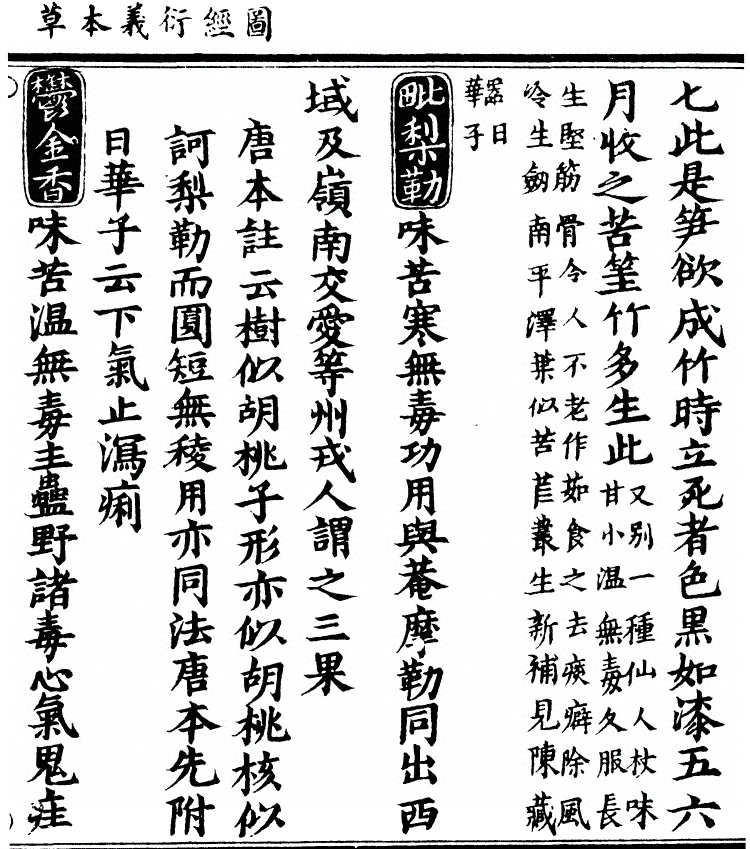 圖經衍義本草
七此是笋欲成竹時立死者色黒如漆五六
月收之苦篁竹多生此又別一種仙人杖味
甘小温無毒久服長
生堅筋骨令人不老作茹食之去痰癖除風
冷生劒南平澤葉似苦苣叢生新補見陳藏
器日
華子
毗梨勒味苦寒無毒功用與菴摩勒同出西
域及嶺南交愛等州戎人謂之三果
唐本註云樹似胡桃子形亦似胡桃核似
訶梨勒而圓短無稜用亦同法唐本先附
日華子云下氣止瀉痢
鬱金香味苦温無毒主蠱野諸毒心氣鬼疰